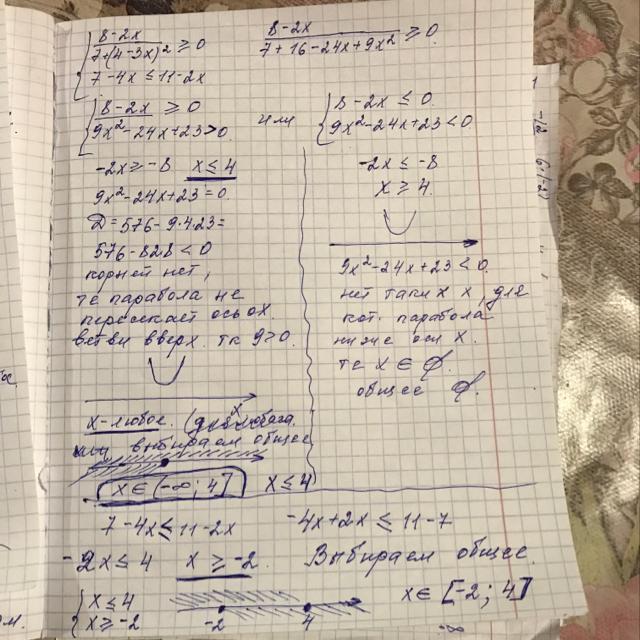 { 8-2x / 7+(4-3x)² ≥ 0
7-4x ≤ 11-2x
8-2x / 7+16-24x+9x² ≥ 0
{ 8-2x ≥ 0
9x²-24x+23>0
или
{ 8-2x ≤ 0
9x²-24x+23<0
-2x ≥ -8 x ≤ 4
9x²-24x+23=0
D=576-9·4·23=
576-828<0
корней нет,
те парабола не
пересекает ось ox.
ветви вверх. тк 9>0.
x-любое. (для любого x
выбираем общее
x ∈ [-∞; 4] x ≤ 4
-2x ≤ -8
x ≥ 4
9x²-24x+23<0
нет таких x, для
кот. парабола
ниже оси x.
те x ∈ ∅.
общее ∅.
7-4x ≤ 11-2x -4x+2x ≤ 11-7
-2x ≤ 4 x ≥ -2 Выбираем общее.
{ x ≤ 4
x ≥ -2
-2 4
x ∈ [-2; 4]
-∞